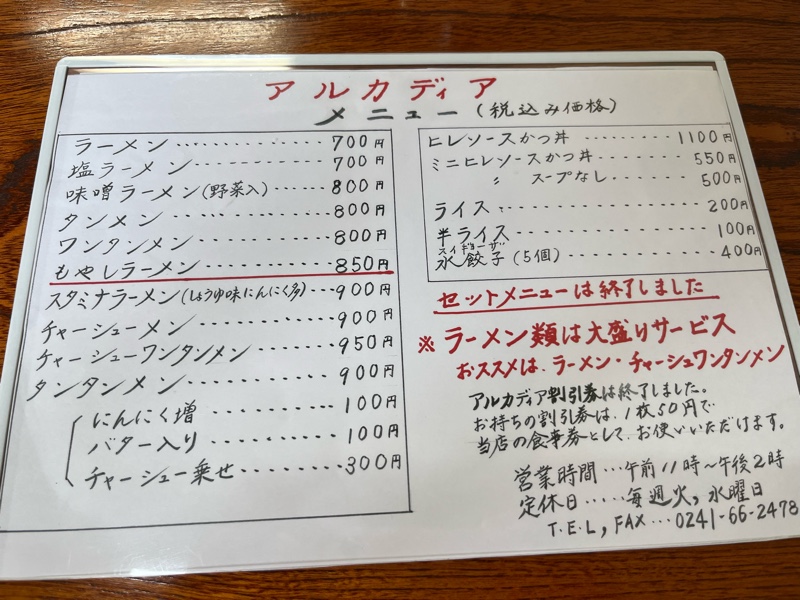 アルカディア
メニュー(税込み価格)
ラーメン・・・・・・・・・・・・・700円
塩ラーメン・・・・・・・・・・・・700円
味噌ラーメン(野菜入)・・・・・・800円
タンメン・・・・・・・・・・・・・800円
ワンタンメン・・・・・・・・・・・800円
もやしラーメン・・・・・・・・・・850円
スタミナラーメン(しょうゆ味にんにく多)・・・900円
チャーシューメン・・・・・・・・・900円
チャーシューワンタンメン・・・・・950円
タンタンメン・・・・・・・・・・・900円
にんにく増・・・・・・・・・・・100円
バター入り・・・・・・・・・・・100円
チャーシュー乗せ・・・・・・・・300円
ヒレソースかつ丼・・・・・・・・1100円
ミニヒレソースかつ丼・・・・・・550円
〃 スープなし・・・・・500円
ライス・・・・・・・・・・・・・200円
半ライス・・・・・・・・・・・・100円
スイギョーザ
水餃子(5個)・・・・・・・・・・400円
セットメニューは終了しました
※ラーメン類は大盛りサービス
おススメは、ラーメン・チャーシュワンタンメン
アルカディア割引券は終了しました。
お持ちの割引券は、1枚50円で
当店の食事券として、お使いいただけます。
営業時間・・・午前11時〜午後2時
定休日・・・・・毎週火,水曜日
T.E.L,FAX・・・0241-66-2478